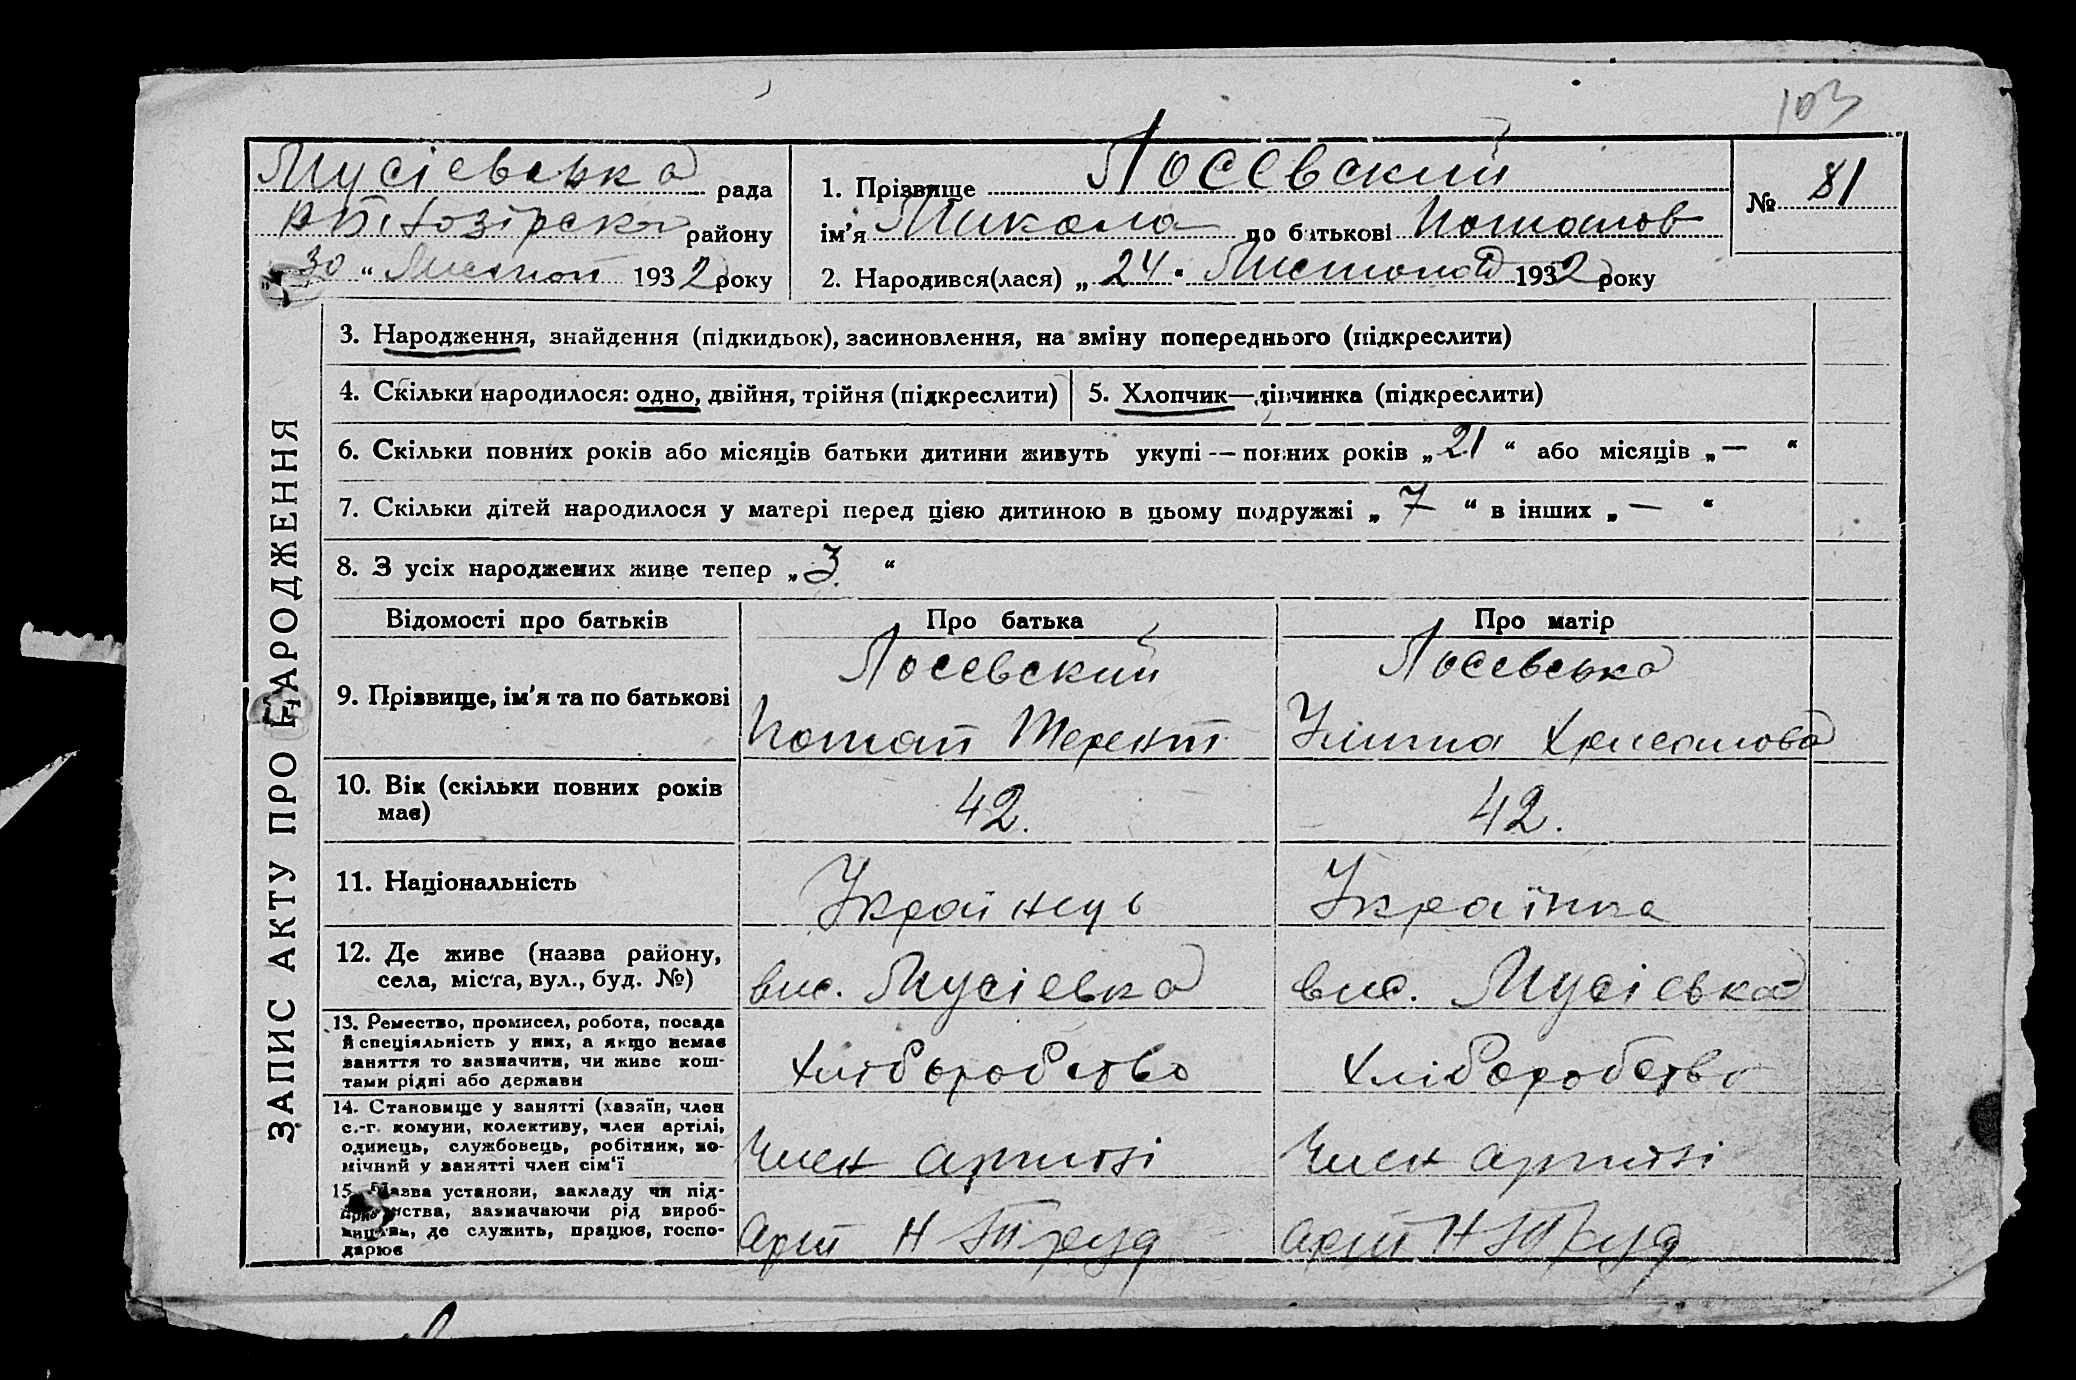 103
Мусієвська рада
В Бітозірско району
„ 30 “ Листоп 1932 року
1. Прізвище Лосєвский
ім'я Микола по батькові Потапов
2. Народився(лася) „ 24 “ Листопад 1932 року
№ 81
ЗАПИС АКТУ ПРО НАРОДЖЕННЯ
3. Народження, знайдення (підкидьок), засиновлення, на зміну попереднього (підкреслити)
4. Скільки народилося: одно, двійня, трійня (підкреслити)
5. Хлопчик—дівчинка (підкреслити)
6. Скільки повних років або місяців батьки дитини живуть укупі — повних років „ 21 “ або місяців „ — “
7. Скільки дітей народилося у матері перед цією дитиною в цьому подружжі „ 7 “ в інших „ — “
8. З усіх народжених живе тепер „ 3 “
Відомості про батьків
Про батька
Про матір
9. Прізвище, ім'я та по батькові
Лосєвский
Потап Терент
Лосєвська
Улита Хрисанова
10. Вік (скільки повних років
має)
42.
42.
11. Національність
Українець
Українка
12. Де живе (назва району,
села, міста, вул., буд. №)
вис. Мусієвка
вис. Мусієвка
13. Ремество, промисел, робота, посада
й спеціяльність у них, а якщо немає
заняття то зазначити, чи живе кош-
тами рідні або держави
Хліборобство
Хліборобство
14. Становище у занятті (хазяїн, член
с.-г. комуни, колективу, член артілі,
одинець, службовець, робітник, по-
мічний у занятті член сім'ї
Член артілі
Член артілі
15. Назва установи, закладу чи під-
приємства, зазначаючи рід вироб-
ництва, де служить, працює, госпо-
дарює
Арт Н Труд
Арт Н Труд